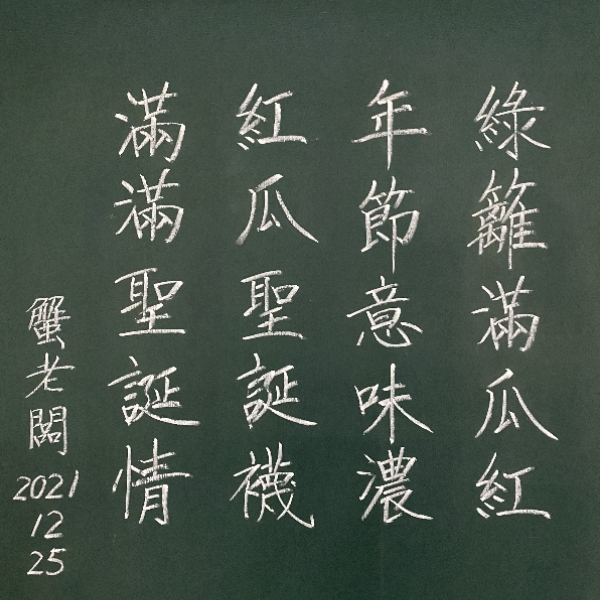 綠籬滿瓜紅
年節意味濃
紅瓜聖誕襪
滿滿聖誕情
蟹老闆
2021
12
25